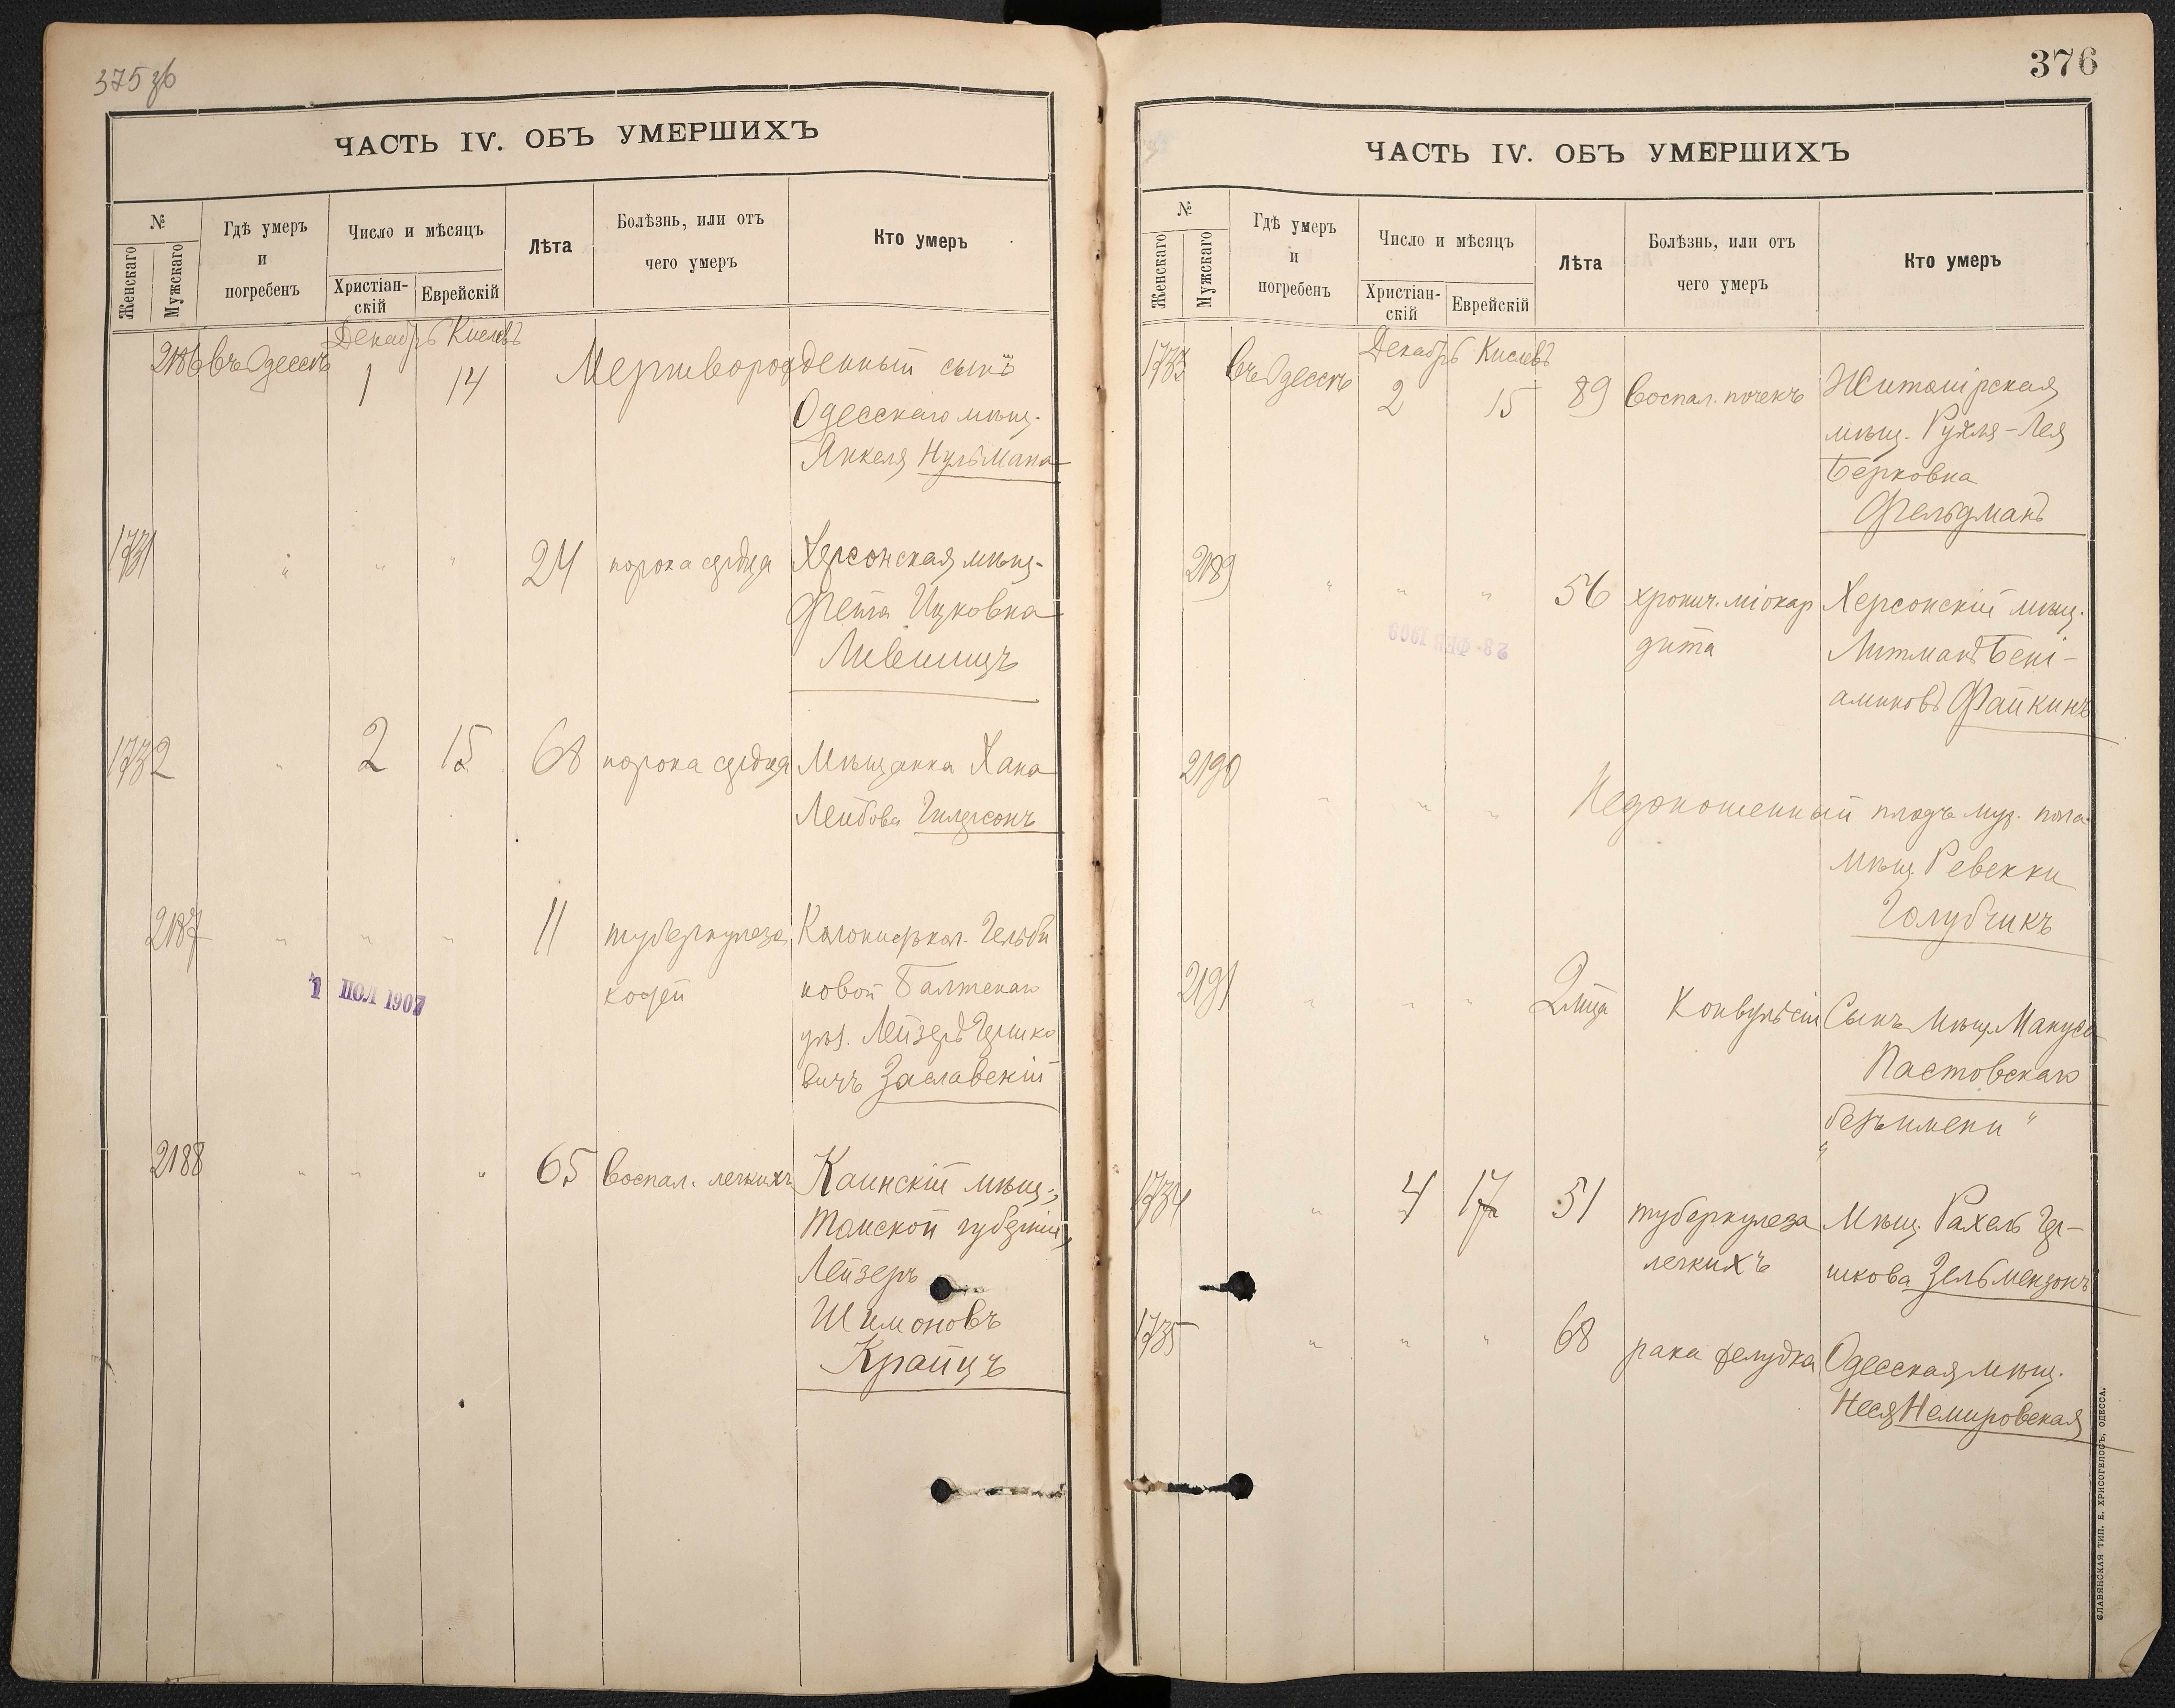 375 зб
ЧАСТЬ IV. ОБЪ УМЕРШИХЪ
№
Женскаго
Мужскаго
Гдѣ умеръ
и
погребенъ
Число и мѣсяцъ
Христіан-
скій
Еврейскій
Лѣта
Болѣзнь, или отъ
чего умеръ
Кто умеръ
Декабрь Кислевъ
2186 въ Одессѣ 1 14 Мертворожденный сынъ
Одесскаго мѣщ.
Янкеля Нульмана
1731 " " " 24 порока сердца Херсонская мѣщ.
Фейга Ицковна
Лившицъ
1732 " 2 15 68 порока сердца Мѣщанка Хана
Лейбова Гилерсонъ
2187 " " " 11 туберкулеза Колонистъ кол. Гельби
костей новой Балтскаго
уѣз. Лейзеръ Гершко
вичъ Заславскій
1 ІЮЛ 1907
2188 " " " 65 воспал. легкихъ Каинскій мѣщ.,
Томской губерніи,
Лейзеръ
Шимоновъ
Крайцъ
376
ЧАСТЬ IV. ОБЪ УМЕРШИХЪ
№
Женскаго
Мужскаго
Гдѣ умеръ
и
погребенъ
Число и мѣсяцъ
Христіан-
скій
Еврейскій
Лѣта
Болѣзнь, или отъ
чего умеръ
Кто умеръ
Декабрь Кислевъ
1733 въ Одессѣ 2 15 89 воспал. почекъ Житомірская
мѣщ. Рухля-Лея
Берковна
Фельдманъ
2189 " " " 56 хронич. міокар Херсонскій мѣщ.
дита Литманъ Бені-
аминовъ Файкинъ
2190 " " " Недоношенный плодъ муж. пола
мѣщ. Ревекки
Голубчикъ
2191 " " " 2 мца Конвульсіи Сынъ мѣщ. Мануса
Пастовскаго
"безъ имени"
1734 " 4 17 51 туберкулеза Мѣщ. Рахель Гер-
легкихъ шкова Зельмензонъ
1735 " " " 68 рака желудка Одесская мѣщ.
Неся Немировская
СЛАВЯНСКАЯ ТИП. Е. ХРИСОГЕЛОСЪ, ОДЕССА.